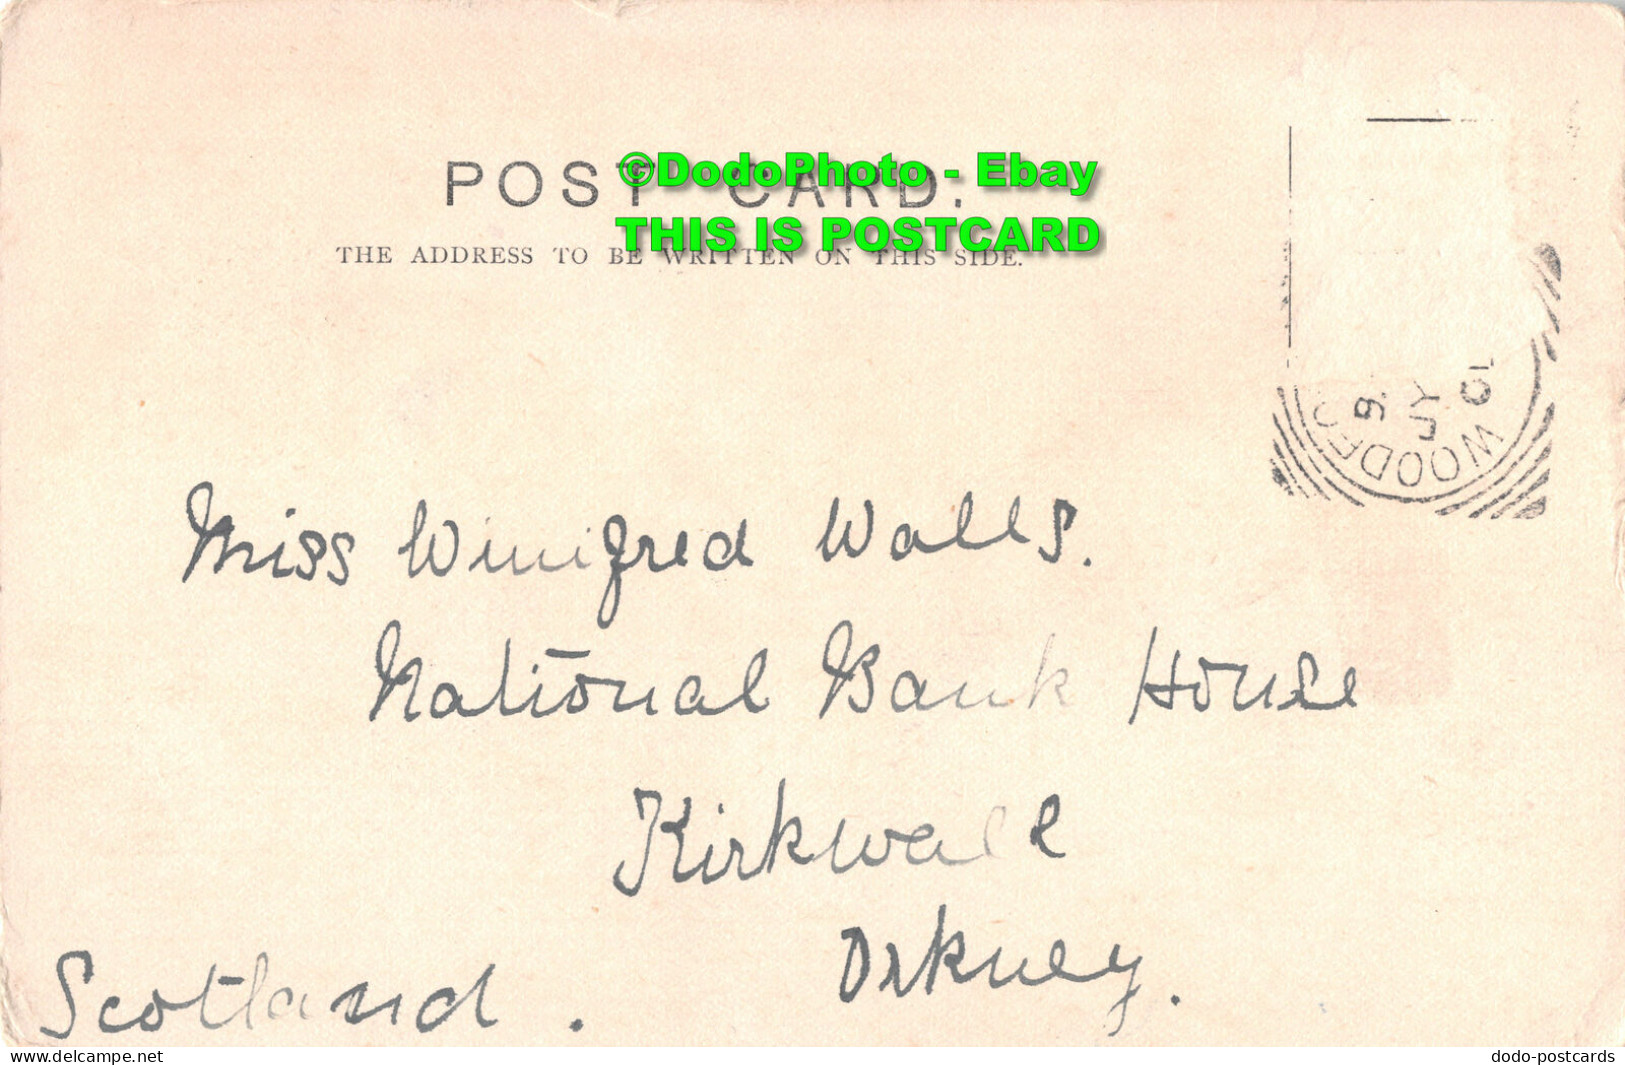 ©DodoPhoto - Ebay
POST CARD.
THIS IS POSTCARD
THE ADDRESS TO BE WRITTEN ON THIS SIDE.
9.
JY
01
WOODFO
Miss Winifred Walls.
National Bank House
Kirkwall
Orkney.
Scotland.
www.delcampe.net
dodo-postcards